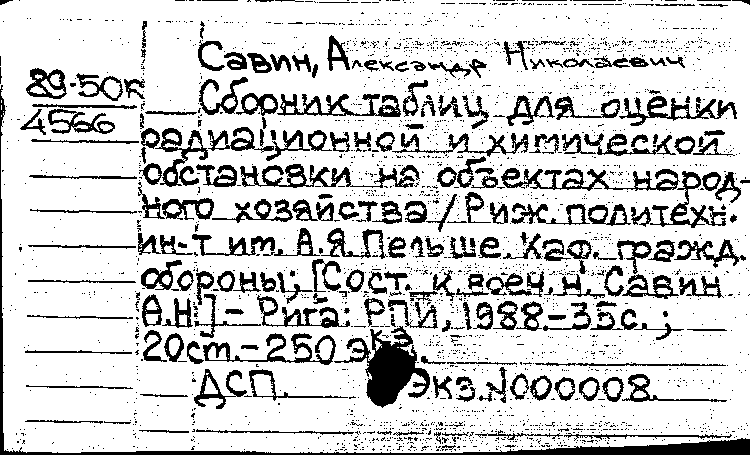 Савин, Александр Николаевич
89-50к
4566
Сборник таблиц для оценки
радиационной и химической
обстановки на объектах народ-
ного хозяйства / Риж. политехн.
ин-т им. А.Я. Пельше. Каф. гражд.
обороны; [Сост. к.воен.н. Савин
А.Н.]. – Рига: РПИ, 1988. – 35с. ;
20см. – 250 экз.
ДСП. Экз. №000008.